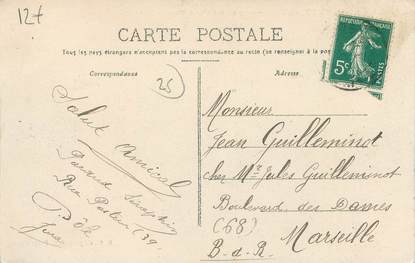 12+
CARTE POSTALE
Tous les pays étrangers n'acceptent pas la correspondance au recto (se renseigner à la pos
Correspondance
Adresse
25
RÉPUBLIQUE FRANÇAISE
5c
POSTES
Salut Amical
Rue Pasteur 29
Dôle
Jura
Monsieur
Jean Guilleminot
chez Mr Jules Guilleminot
Boulevard des Dames
(68)
Marseille
B-d-R.